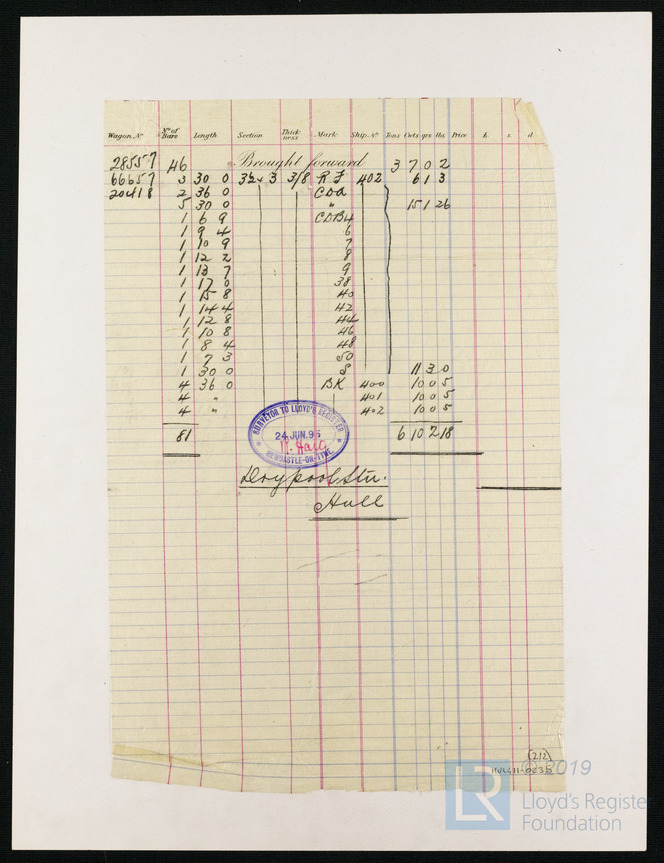 Wagon. No No of Bars Length Section Thickness Mark Ship. No Tons Cwts qrs lbs Price £ s d
28557 46 Brought forward 3 7 0 2
66657 3 30 0 3½ x 3 3/8 R F 402 6 1 3
20418 2 36 0 CDA
5 30 0 " 15 1 26
1 6 9 CDB4
1 9 4 6
1 10 9 7
1 12 2 8
1 13 7 9
1 17 0 38
1 15 8 40
1 14 4 42
1 12 8 44
1 10 8 46
1 8 4 48
1 7 3 50
1 30 0 S 11 3 0
4 36 0 BK 400 10 0 5
4 " 401 10 0 5
4 " 402 10 0 5
81 6 10 2 18
SURVEYOR TO LLOYD'S REGISTER
24 JUN. 95
NEWCASTLE-ON-TYNE
Drypool Stn.
Hull
(212)
HUL411-0235
© 2019
LR
Lloyd's Register
Foundation